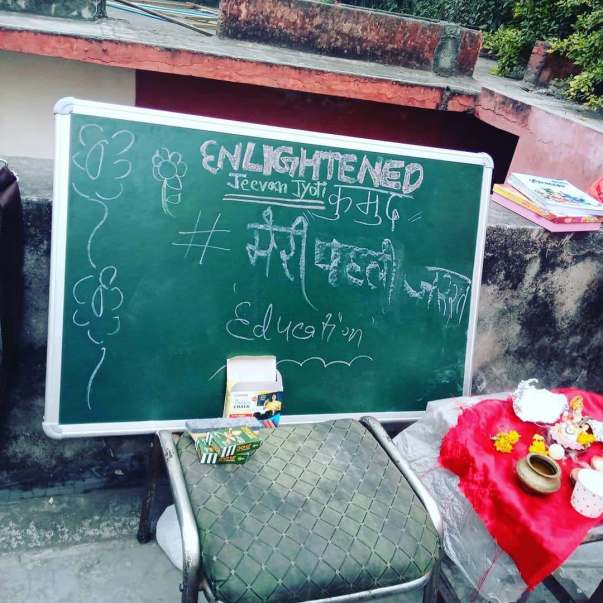 ENLIGHTENED
Jeevan Jyoti
कुमुद
# मेरी पहली जरूरत
'Education'
CHALK